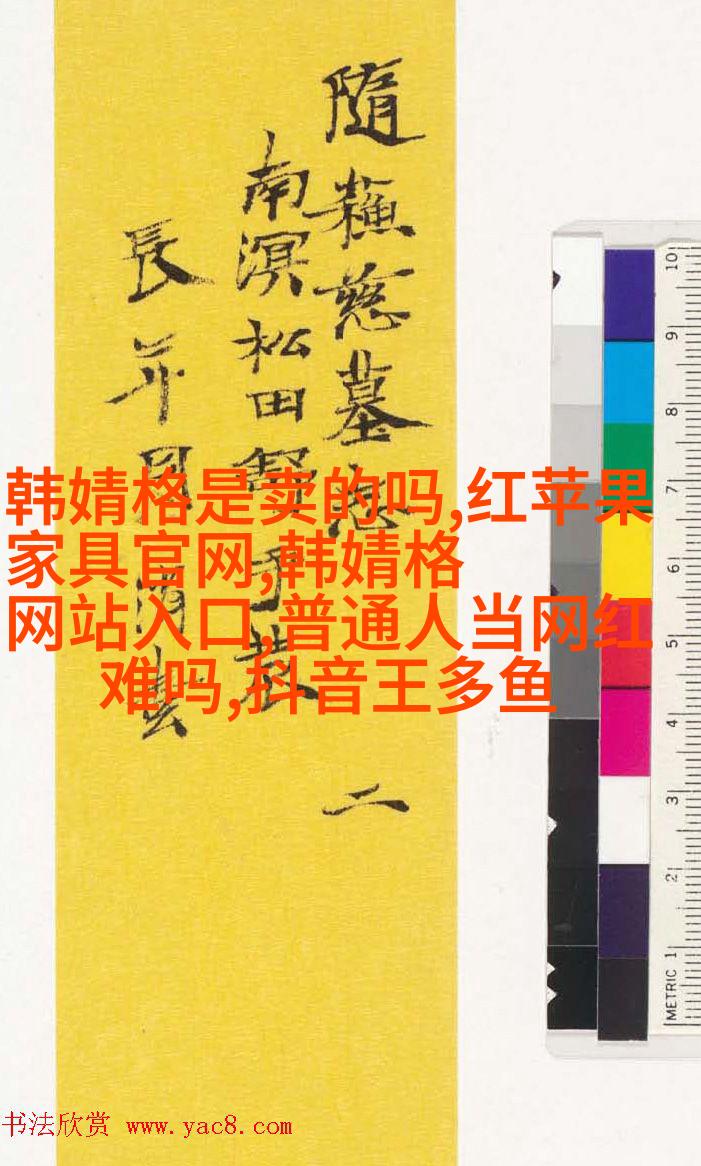 隨龝慈墓志
南溟松田
長
二
韩婧格是卖的吗,红苹果
家具官网,韩婧格
网站入口,普通人当网红
难吗,抖音王多鱼
10
9
8
7
6
5
4
3
2
METRIC 1
书法欣赏 www.yac8.com